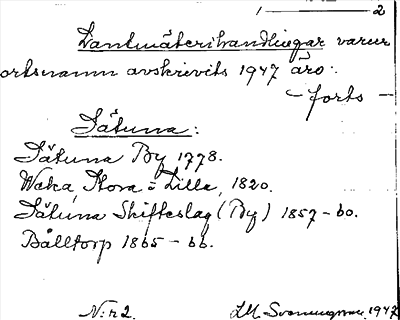 1 — 2
Lantmäterihandlingar varur
ortsnamn avskrivits 1947 äro:
— forts —
Sätuna:
Sätuna By 1778.
Weka, Stora o Lilla, 1820.
Sätuna Skifteslag (By) 1857-60.
Bålltorp 1865-66.
N:r 2.
1947